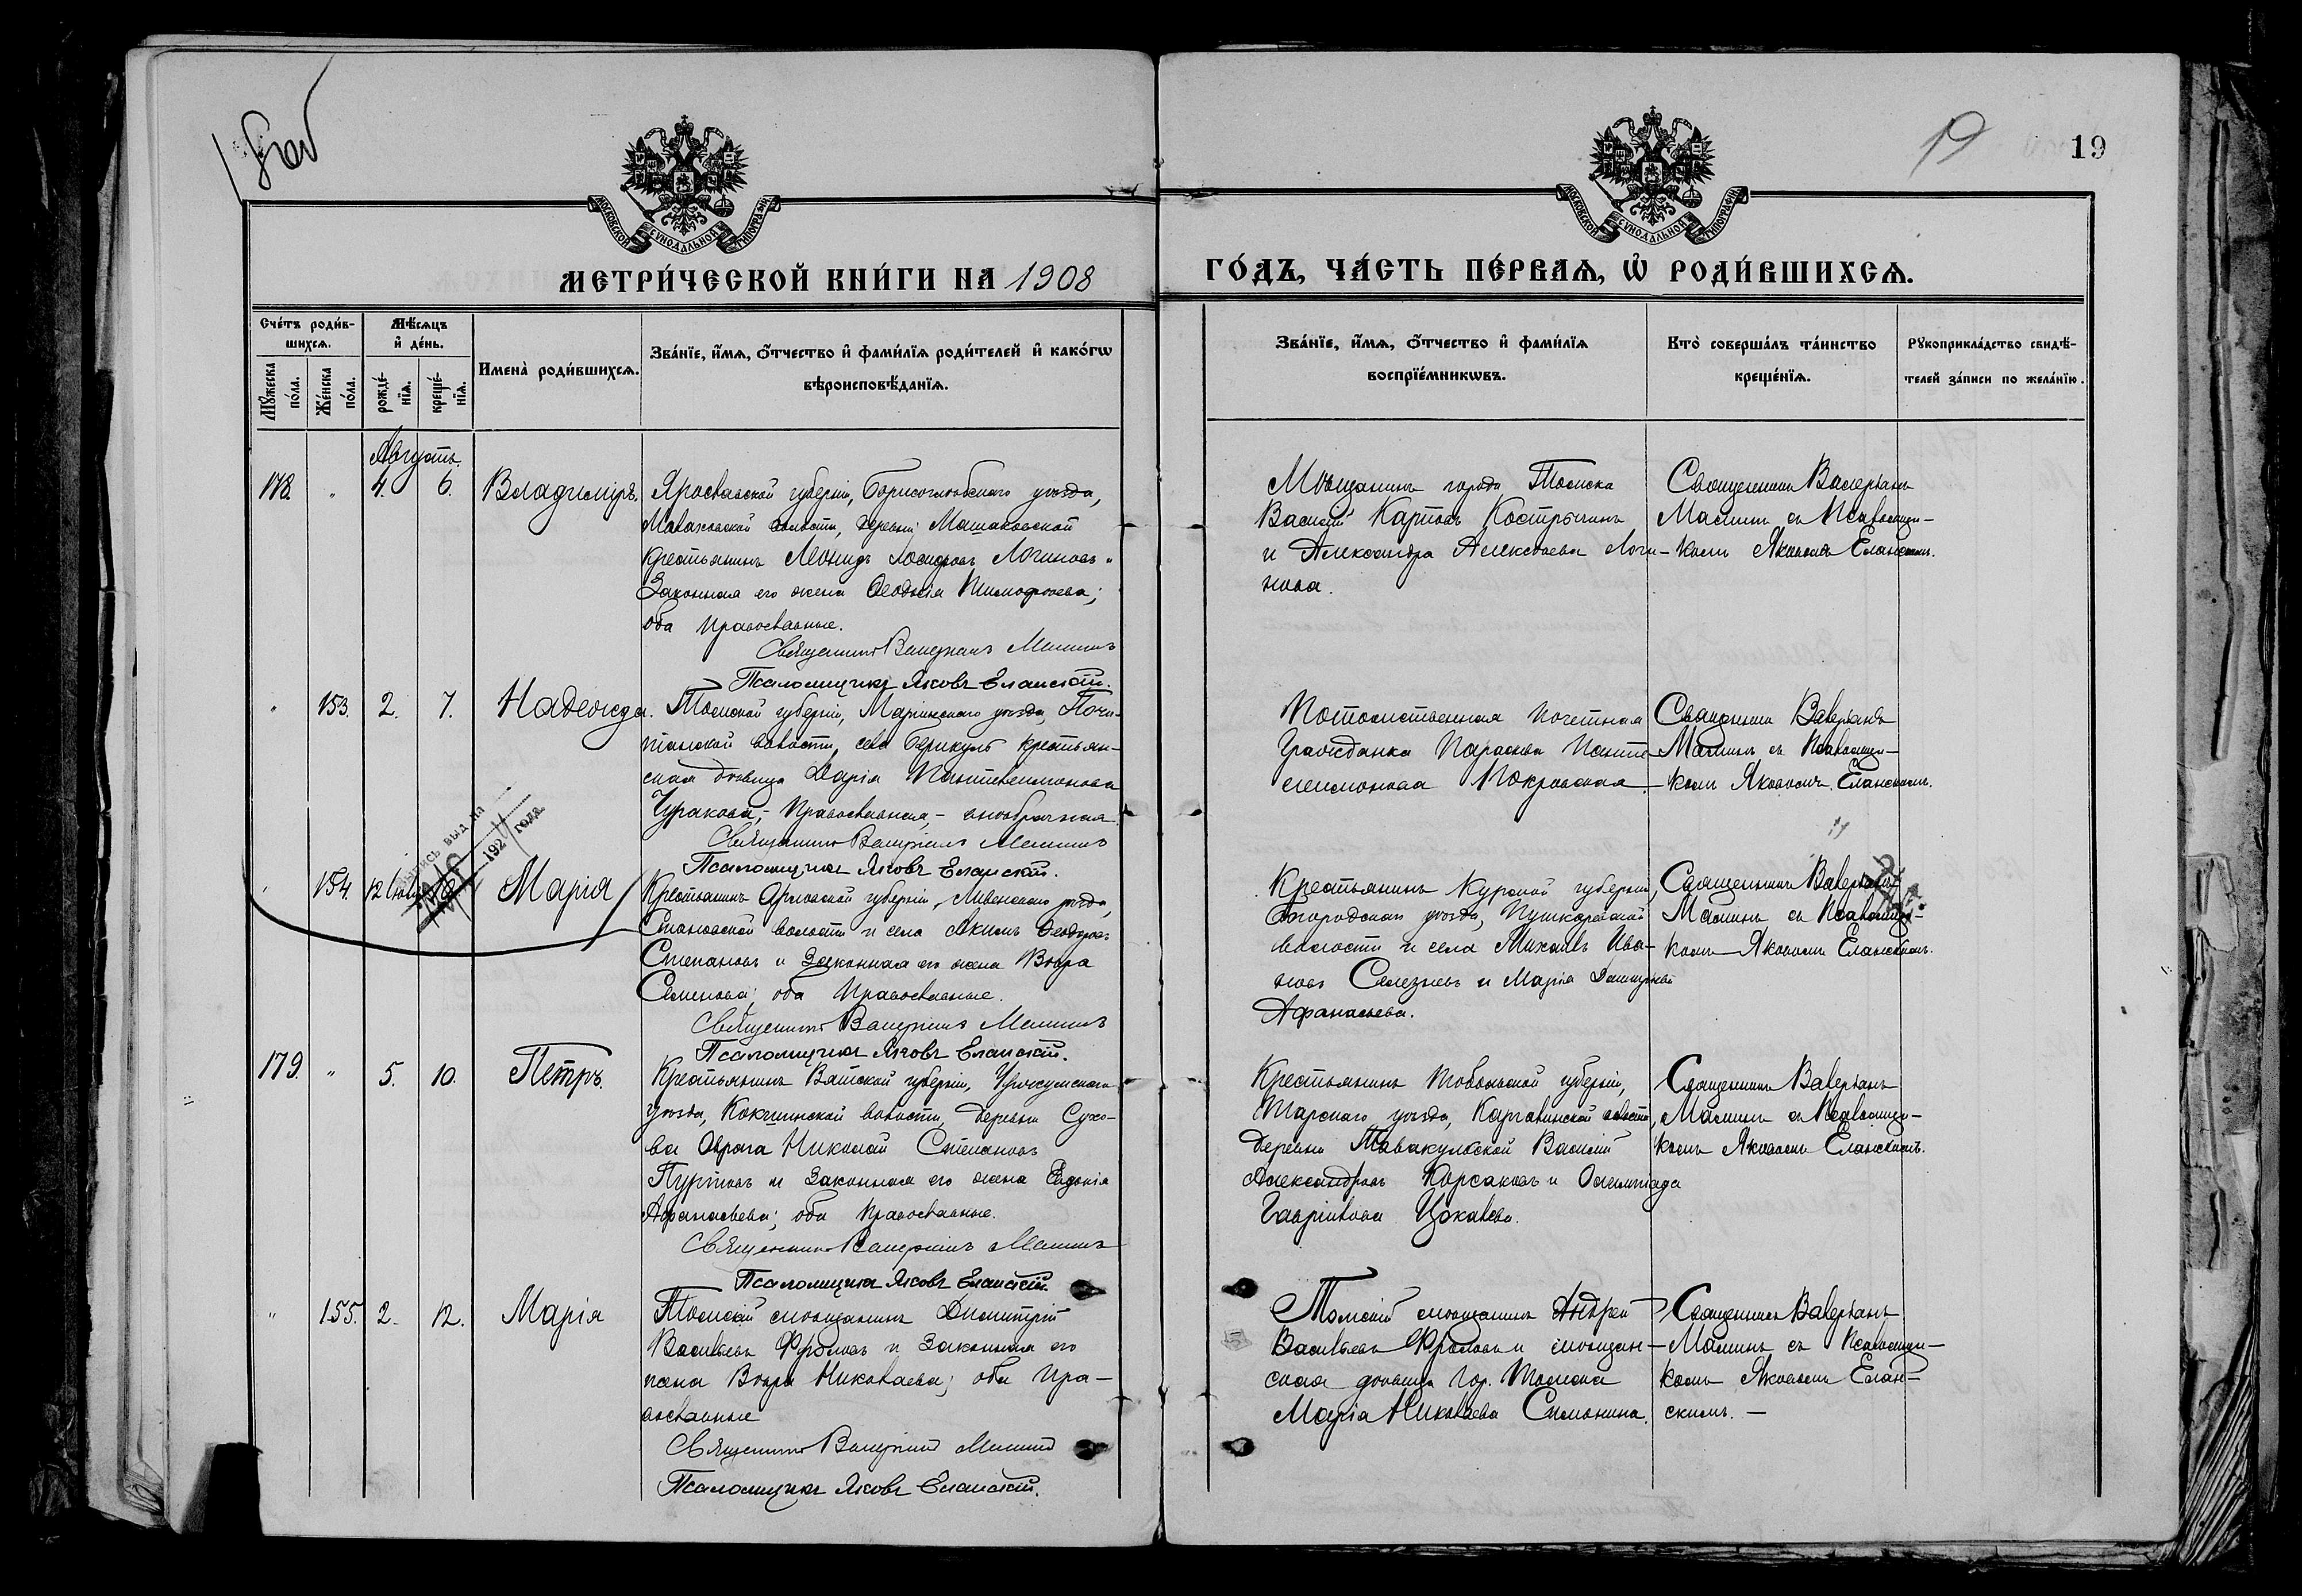 19
19
МОСКОВСКОЙ СѴНОДАЛЬНОЙ ТИПОГРАФІИ
МОСКОВСКОЙ СѴНОДАЛЬНОЙ ТИПОГРАФІИ
МЕТРИ́ЧЕСКОЙ КНИ́ГИ НА 1908
ГО́ДЪ, ЧА́СТЬ ПЕ́РВАѦ, Ѽ РОДИ́ВШИХСѦ.
Сче́тъ роди́в-
шихсѧ.
Мꙋ́жеска по́ла.
Же́нска по́ла.
Мѣ́сѧцъ
и҆ де́нь.
рожде́-
нїѧ.
креще́-
нїѧ.
Имена̀ роди́вшихсѧ.
Зва́нїе, и҆́мѧ, ѻ҆́тчество и҆ фами́лїѧ роди́телей и҆ како́гѡ
вѣроисповѣ́данїѧ.
Зва́нїе, и҆́мѧ, ѻ҆́тчество и҆ фами́лїѧ
воспрїе́мникѡвъ.
Кто̀ соверша́лъ та́инство
креще́нїѧ.
Рꙋкоприкла́дство свидѣ́-
телей за́писи по жела́нїю.
Августъ.
178. " 4. 6. Владиміръ.
Ярославской губерніи, Борисоглѣбскаго уѣзда,
волости, деревни Машаковской
крестьянинъ Леонидъ Логиновъ и
Законная его жена Ѳеодосія Тимофѣева;
оба православные.
Священникъ Валеріанъ Маминъ
Псаломщикъ Яковъ Еланскій.
Мѣщанинъ города Томска
Василій Карповъ Костръминъ
и Александра Алексѣева Логи-
нова.
Священникъ Валеріанъ
Маминъ съ Псаломщи-
комъ Яковомъ Еланскимъ.
" 153. 2. 7. Надежда.
Томской губерніи, Маріинскаго уѣзда, Почи-
танской волости, села Берикуль крестьян-
ская дѣвица Дарія Пантелеимонова
Чуракова, - Православная, -
Священникъ Валеріанъ Маминъ
Псаломщикъ Яковъ Еланскій.
Потомственная почетная
гражданка Параскева Панте-
леимонова Покровская.
Священникъ Валеріанъ
Маминъ съ Псаломщи-
комъ Яковомъ Еланскимъ.
выпись выд на
192 года
" 154. 12 Марія
Крестьянинъ Орловской губерніи, Ливенскаго уѣзда,
волости и села Акимъ Ѳеодоровъ
Степановъ и Законная его жена Вѣра
Семенова; оба Православные.
Священникъ Валеріанъ Маминъ
Псаломщикъ Яковъ Еланскій.
Крестьянинъ Курской губерніи,
уѣзда, Пушкарской
волости и села Михаилъ Ива-
новъ Селезневъ и Марія
Афанасьева.
Священникъ Валеріанъ
Маминъ съ Псаломщи-
комъ Яковомъ Еланскимъ.
179. " 5. 10. Петръ.
Крестьянинъ Вятской губерніи, Уржумскаго
уѣзда, Кокшинской волости, деревни Сухо-
ва Оврага Николай Степановъ
Пуртовъ и Законная его жена Евдокія
Афанасьева; оба Православные.
Священникъ Валеріанъ Маминъ
Псаломщикъ Яковъ Еланскій.
Крестьянинъ Тобольской губерніи,
Тарскаго уѣзда, Карталинской волости,
деревни Тавакульской Василій
Александровъ Корсаковъ и Олимпіада
Гавріилова
Священникъ Валеріанъ
Маминъ съ Псаломщи-
комъ Яковомъ Еланскимъ.
" 155. 2. 12. Марія
Томскій мѣщанинъ Димитрій
Васильевъ Фроловъ и Законная его
жена Вѣра Николаева; оба Пра-
вославные
Священникъ Валеріанъ Маминъ
Псаломщикъ Яковъ Еланскій.
Томскій мѣщанинъ Андрей
Васильевъ Фроловъ и мѣщан-
ская дѣвица гор. Томска
Марія Николаева Симонина.
Священникъ Валеріанъ
Маминъ съ Псаломщи-
комъ Яковомъ Елан-
скимъ. —